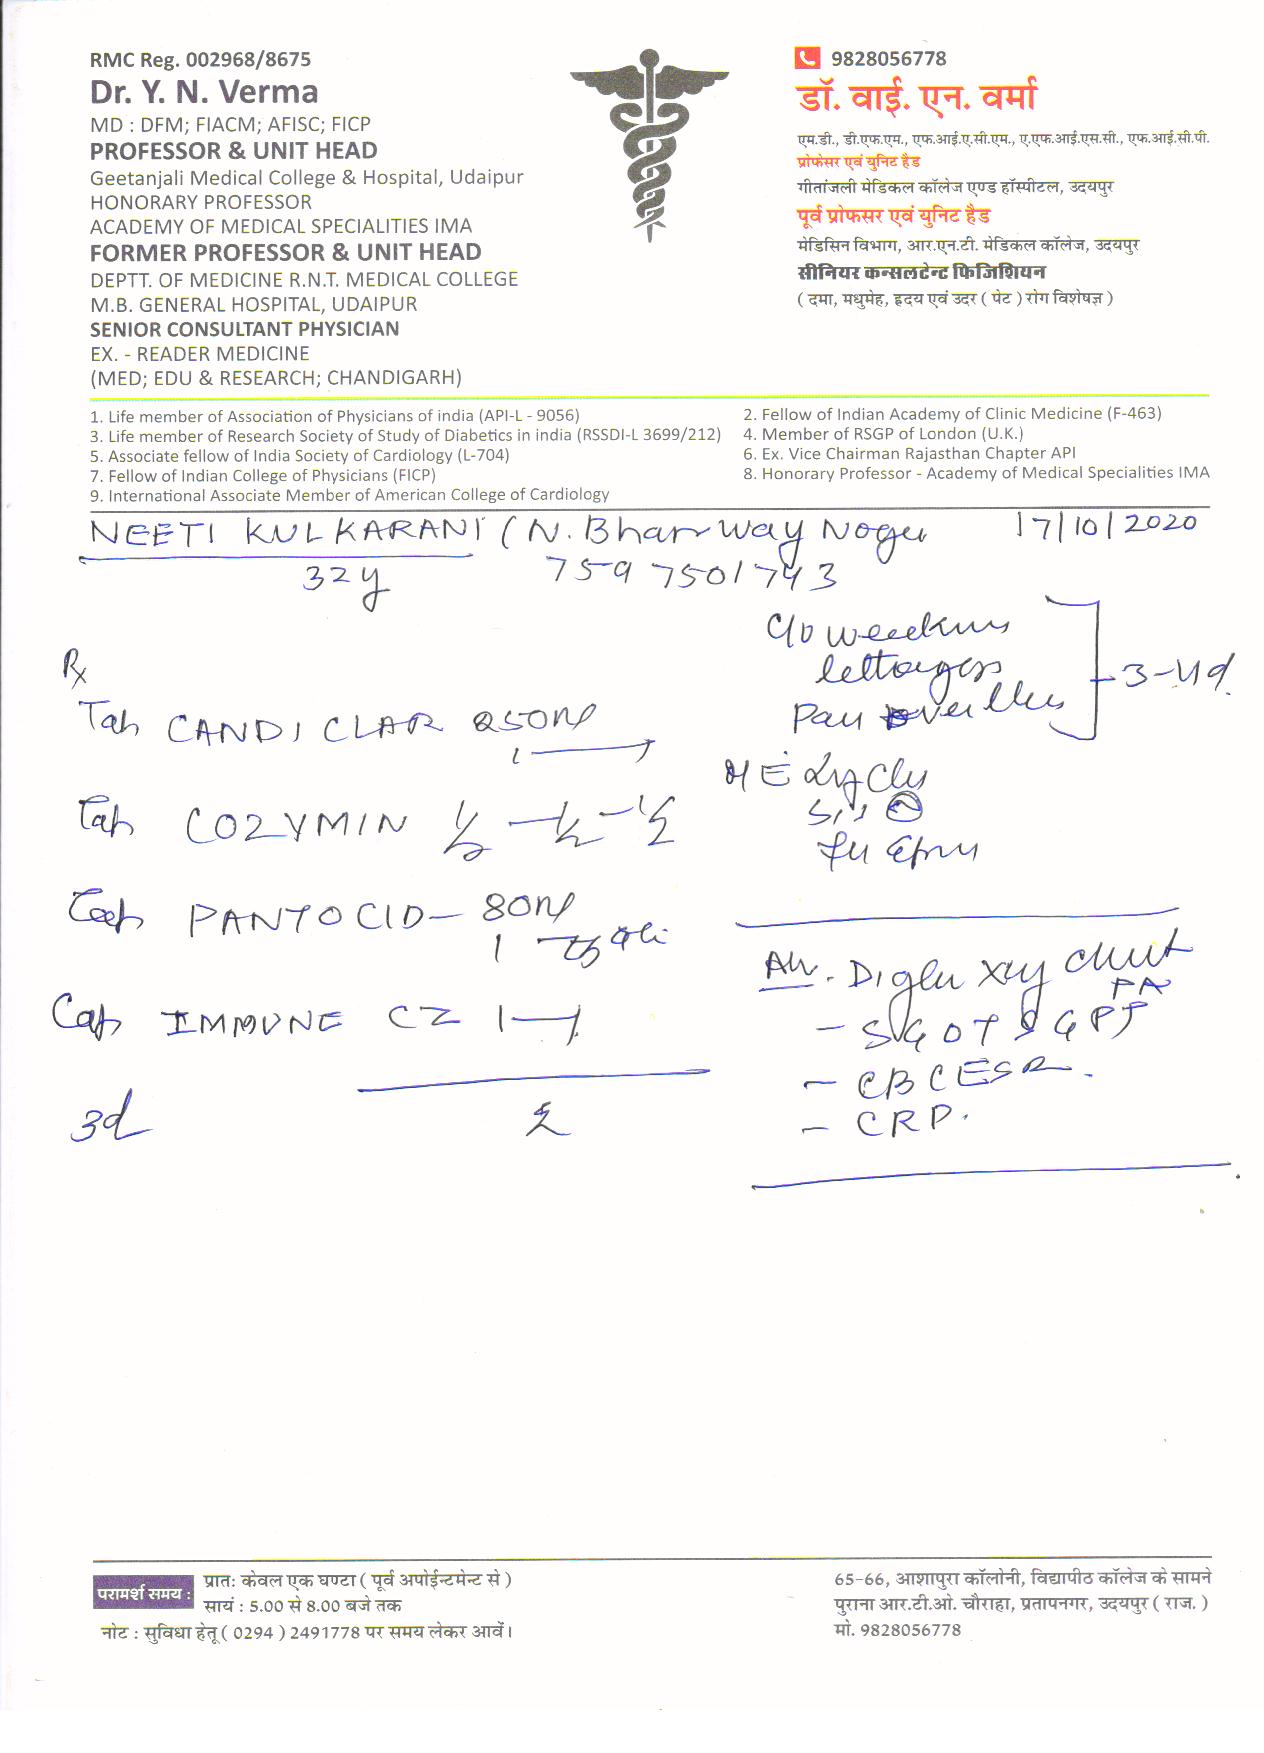 RMC Reg. 002968/8675
Dr. Y. N. Verma
MD : DFM; FIACM; AFISC; FICP
PROFESSOR & UNIT HEAD
Geetanjali Medical College & Hospital, Udaipur
HONORARY PROFESSOR
ACADEMY OF MEDICAL SPECIALITIES IMA
FORMER PROFESSOR & UNIT HEAD
DEPTT. OF MEDICINE R.N.T. MEDICAL COLLEGE
M.B. GENERAL HOSPITAL, UDAIPUR
SENIOR CONSULTANT PHYSICIAN
EX. - READER MEDICINE
(MED; EDU & RESEARCH; CHANDIGARH)
9828056778
डॉ. वाई. एन. वर्मा
एम.डी., डी.एफ.एम., एफ.आई.ए.सी.एम., ए.एफ.आई.एस.सी., एफ.आई.सी.पी.
प्रोफेसर एवं युनिट हैड
गीतांजली मेडिकल कॉलेज एण्ड हॉस्पीटल, उदयपुर
पूर्व प्रोफसर एवं युनिट हैड
मेडिसिन विभाग, आर.एन.टी. मेडिकल कॉलेज, उदयपुर
सीनियर कन्सलटेन्ट फिजिशियन
( दमा, मधुमेह, ह्रदय एवं उदर ( पेट ) रोग विशेषज्ञ )
1. Life member of Association of Physicians of india (API-L - 9056)
2. Fellow of Indian Academy of Clinic Medicine (F-463)
3. Life member of Research Society of Study of Diabetics in india (RSSDI-L 3699/212)
4. Member of RSGP of London (U.K.)
5. Associate fellow of India Society of Cardiology (L-704)
6. Ex. Vice Chairman Rajasthan Chapter API
7. Fellow of Indian College of Physicians (FICP)
8. Honorary Professor - Academy of Medical Specialities IMA
9. International Associate Member of American College of Cardiology
NEETI KULKARANI (N. Bharway Noger 17/10/2020
32y 7597501743
C/o
3-4d.
Rx
Tab CANDICLAR 250mg
1 — 1
Tab COZYMIN ½ — ½ — ½
Tab PANTOCID - 80mg
1
Cap IMMUNE CZ 1 — 1
3d
Adv.
- SGOT SGPT
- CBC ESR.
- CRP.
परामर्श समय :
प्रातः केवल एक घण्टा ( पूर्व अपोईन्टमेन्ट से )
सायं : 5.00 से 8.00 बजे तक
नोट : सुविधा हेतू ( 0294 ) 2491778 पर समय लेकर आवें।
65-66, आशापुरा कॉलोनी, विद्यापीठ कॉलेज के सामने
पुराना आर.टी.ओ. चौराहा, प्रतापनगर, उदयपुर ( राज. )
मो. 9828056778